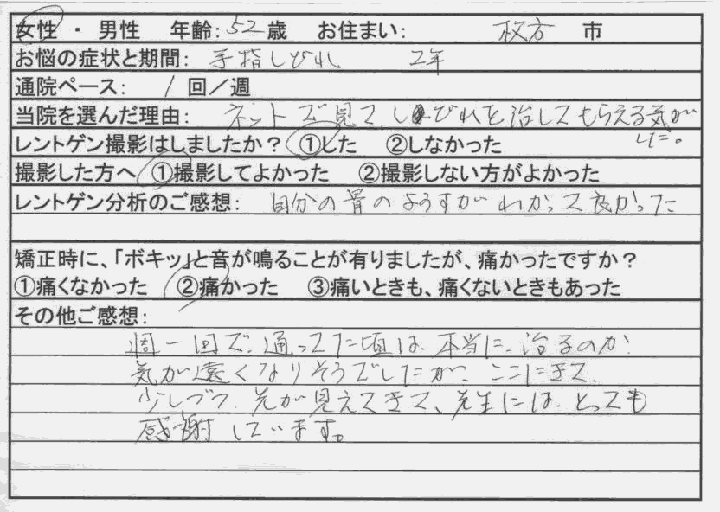 女性 ・ 男性 年齢: 52 歳 お住まい: 枚方 市
お悩の症状と期間: 手指しびれ 2年
通院ペース: 1 回／週
当院を選んだ理由: ネットで見てしびれを治してもらえる気が
した。
レントゲン撮影はしましたか？ ①した ②しなかった
撮影した方へ ①撮影してよかった ②撮影しない方がよかった
レントゲン分析のご感想: 自分の骨のようすがわかって良かった
矯正時に、「ボキッ」と音が鳴ることが有りましたが、痛かったですか？
①痛くなかった ②痛かった ③痛いときも、痛くないときもあった
その他ご感想:
週一回で、通ってた頃は、本当に、治るのか、
気が遠くなりそうでしたが、ここにきて
少しづつ、先が見えてきて、先生には、とっても
感謝しています。